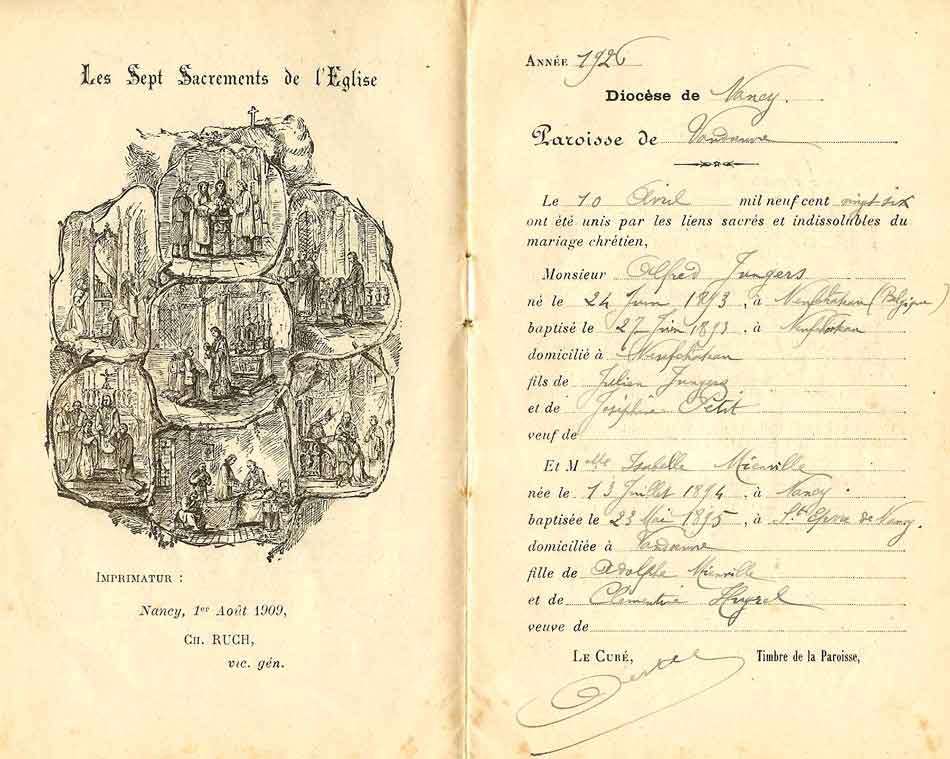 Les Sept Sacrements de l'Eglise
IMPRIMATUR :
Nancy, 1er Août 1909,
CH. RUCH,
vic. gén.
ANNÉE 1926
Diocèse de Nancy.
Paroisse de Vandœuvre
Le 10 Avril mil neuf cent vingt six
ont été unis par les liens sacrés et indissolubles du
mariage chrétien,
Monsieur Alfred Jungers
né le 24 Juin 1893, à Neufchateau (Belgique)
baptisé le 27 Juin 1893, à Neufchateau
domicilié à Neufchateau
fils de Julien Jungers
et de Joséphine Petit
veuf de
Et Melle Isabelle Mienville
née le 13 Juillet 1894, à Nancy.
baptisée le 23 Mai 1895, à St Epvre de Nancy.
domiciliée à Vandœuvre
fille de Adolphe Mienville
et de Clémentine
veuve de
LE CURÉ, Timbre de la Paroisse,